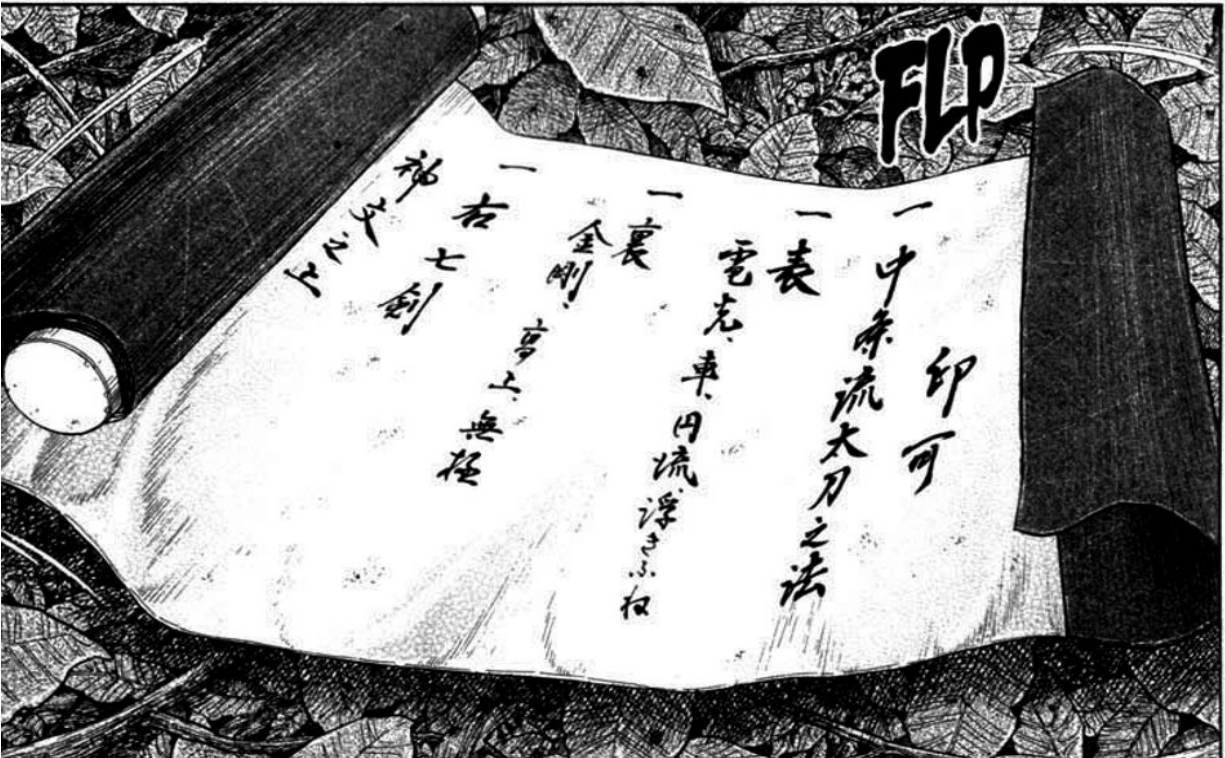 FLP
印可
一 中条流太刀之法
一 表
電光、車、円流、浮きふね
一 裏
金剛、高上、無極
一 右七剣
神文之上